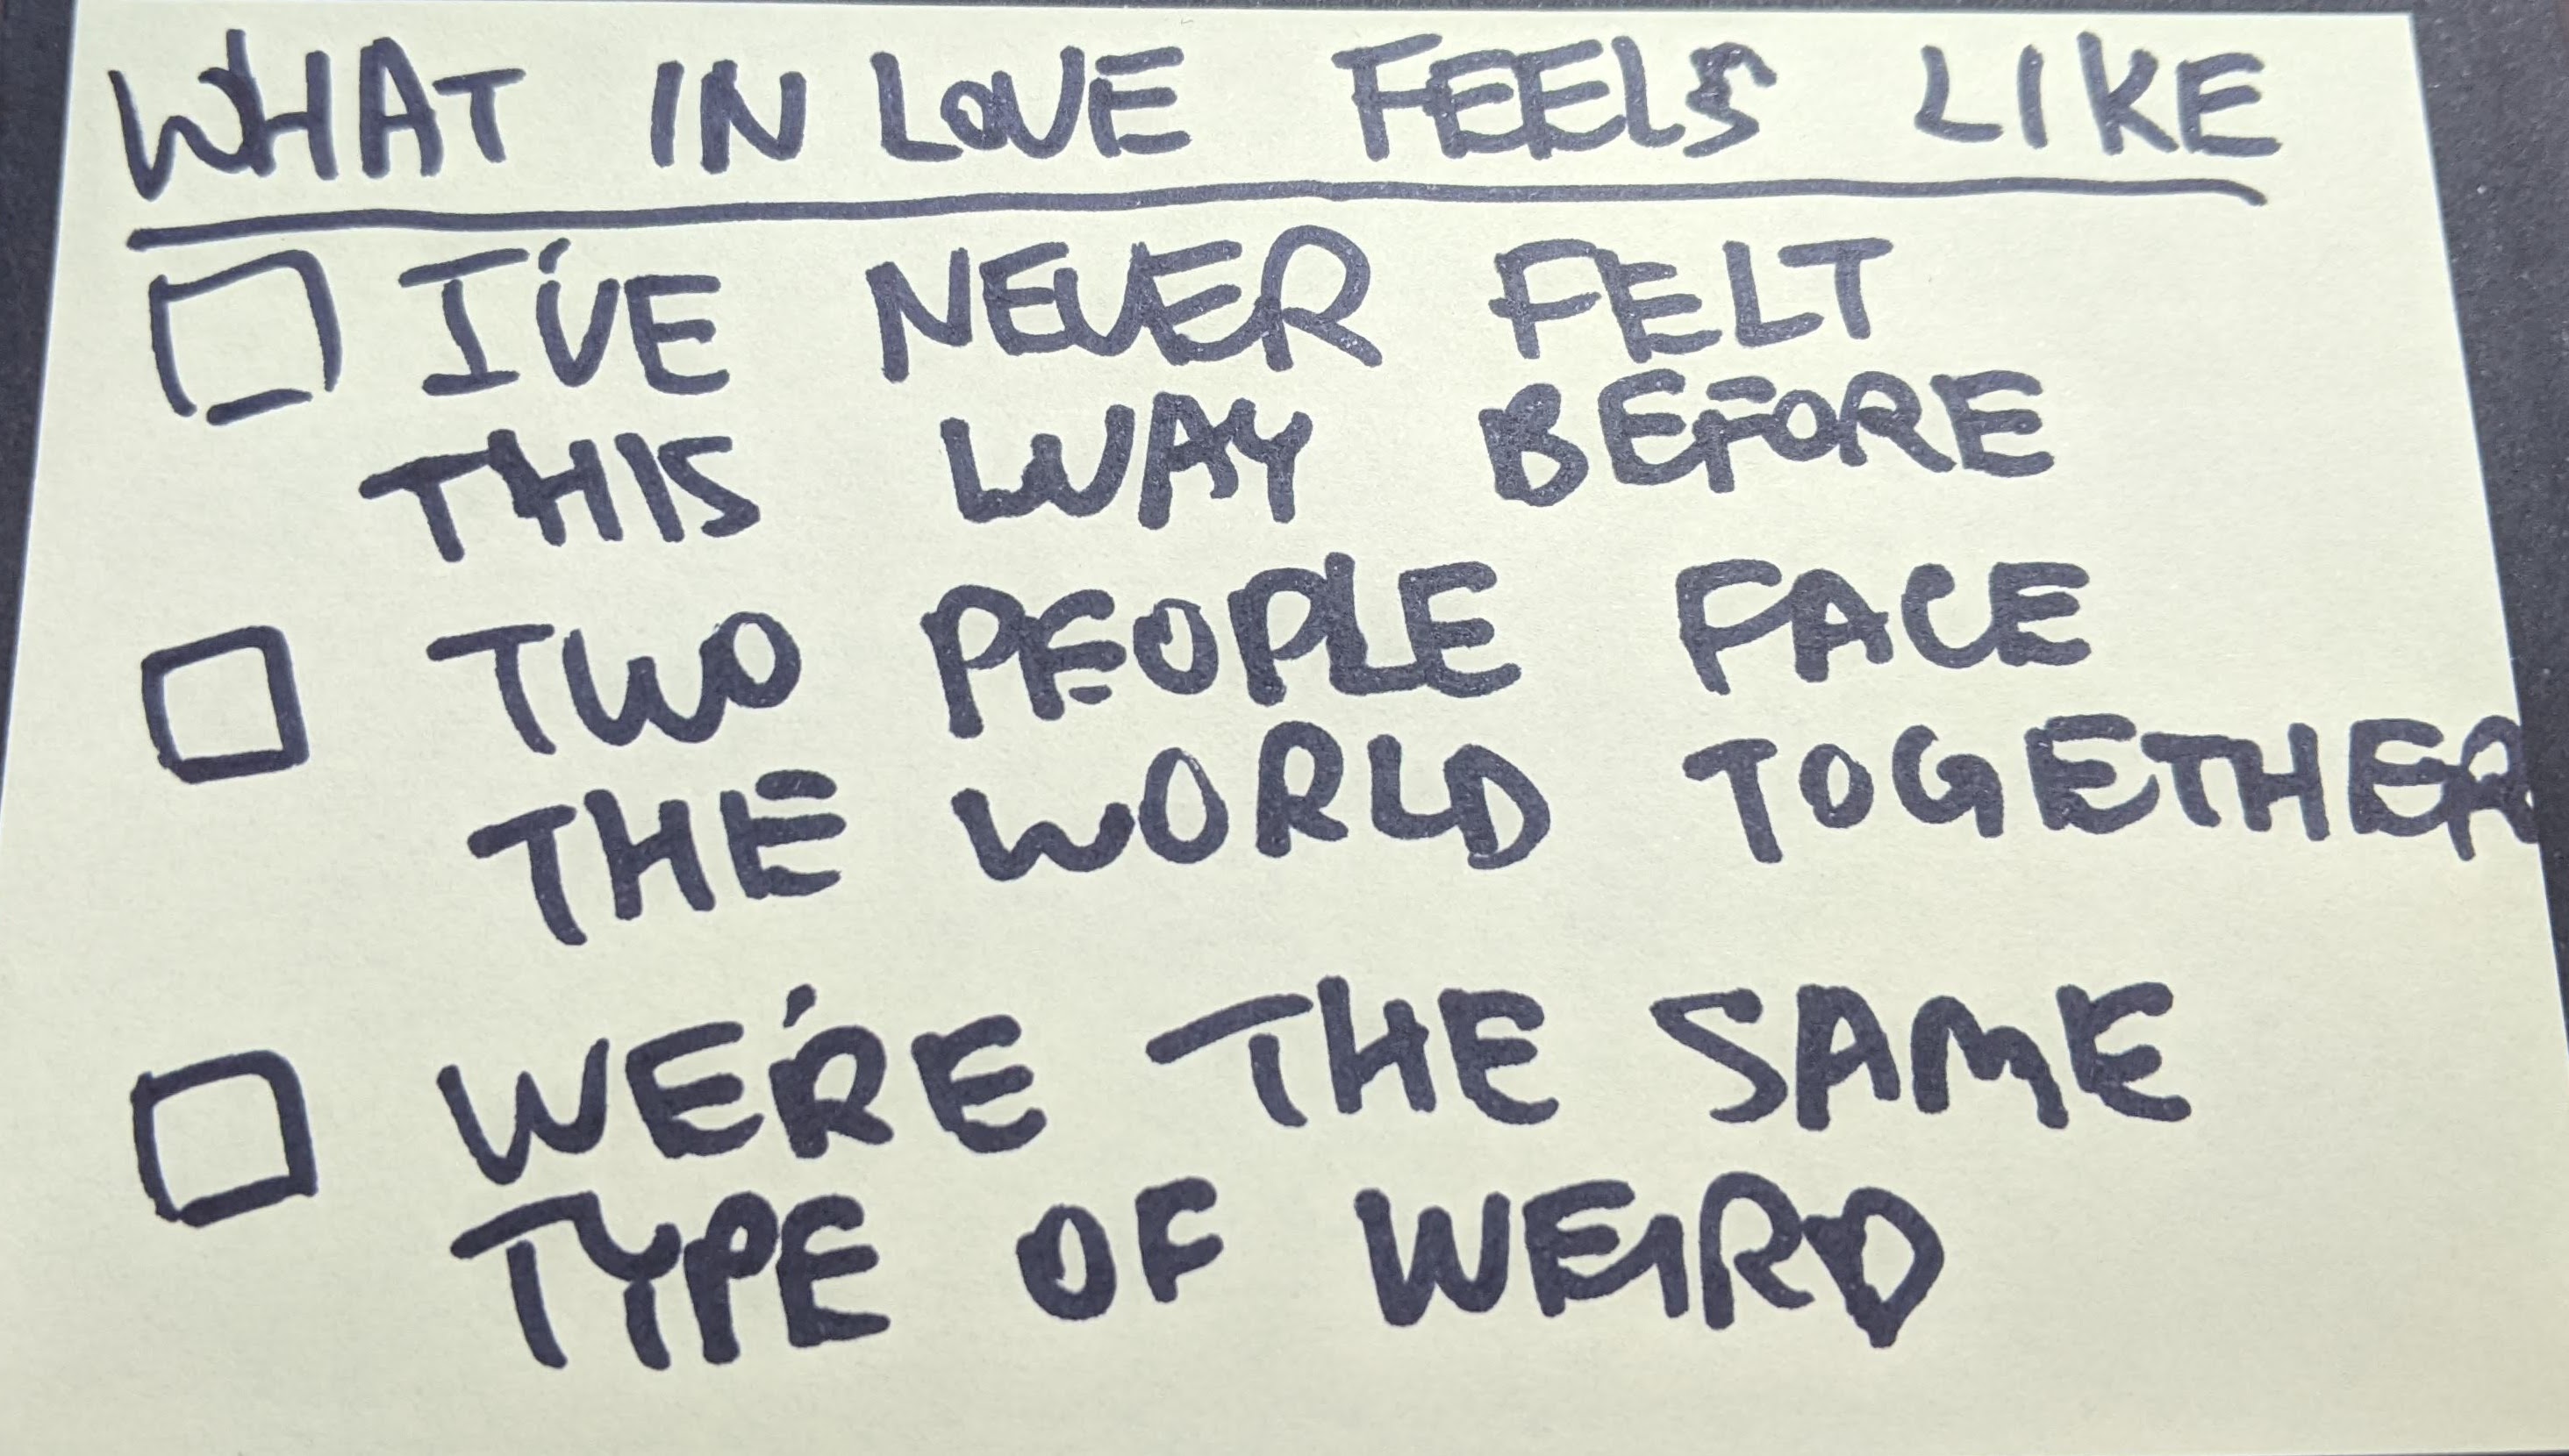 WHAT IN LOVE FEELS LIKE
I'VE NEVER FELT
THIS WAY BEFORE
TWO PEOPLE FACE
THE WORLD TOGETHER
WE'RE THE SAME
TYPE OF WEIRD